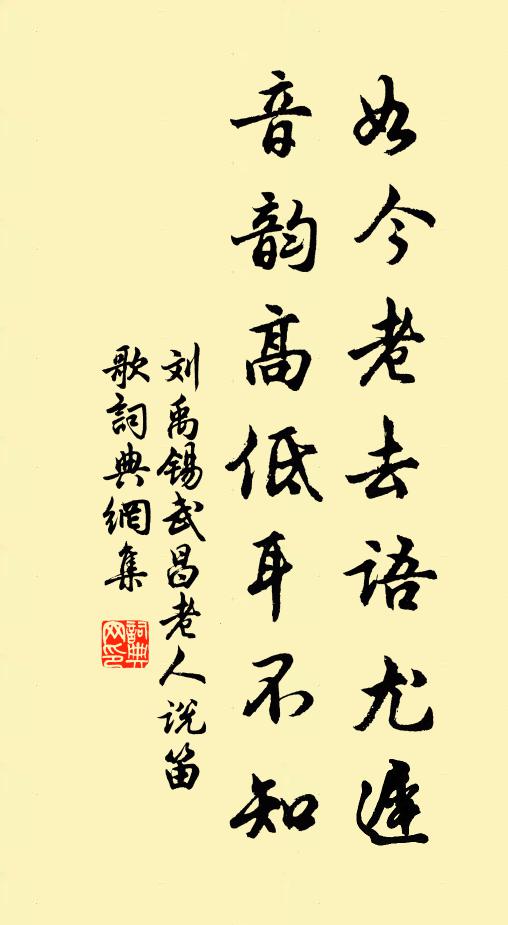 如今老去语尤遲
音韵高低耳不知
刘禹锡武昌老人说笛
歌詞典網集
詞典网印